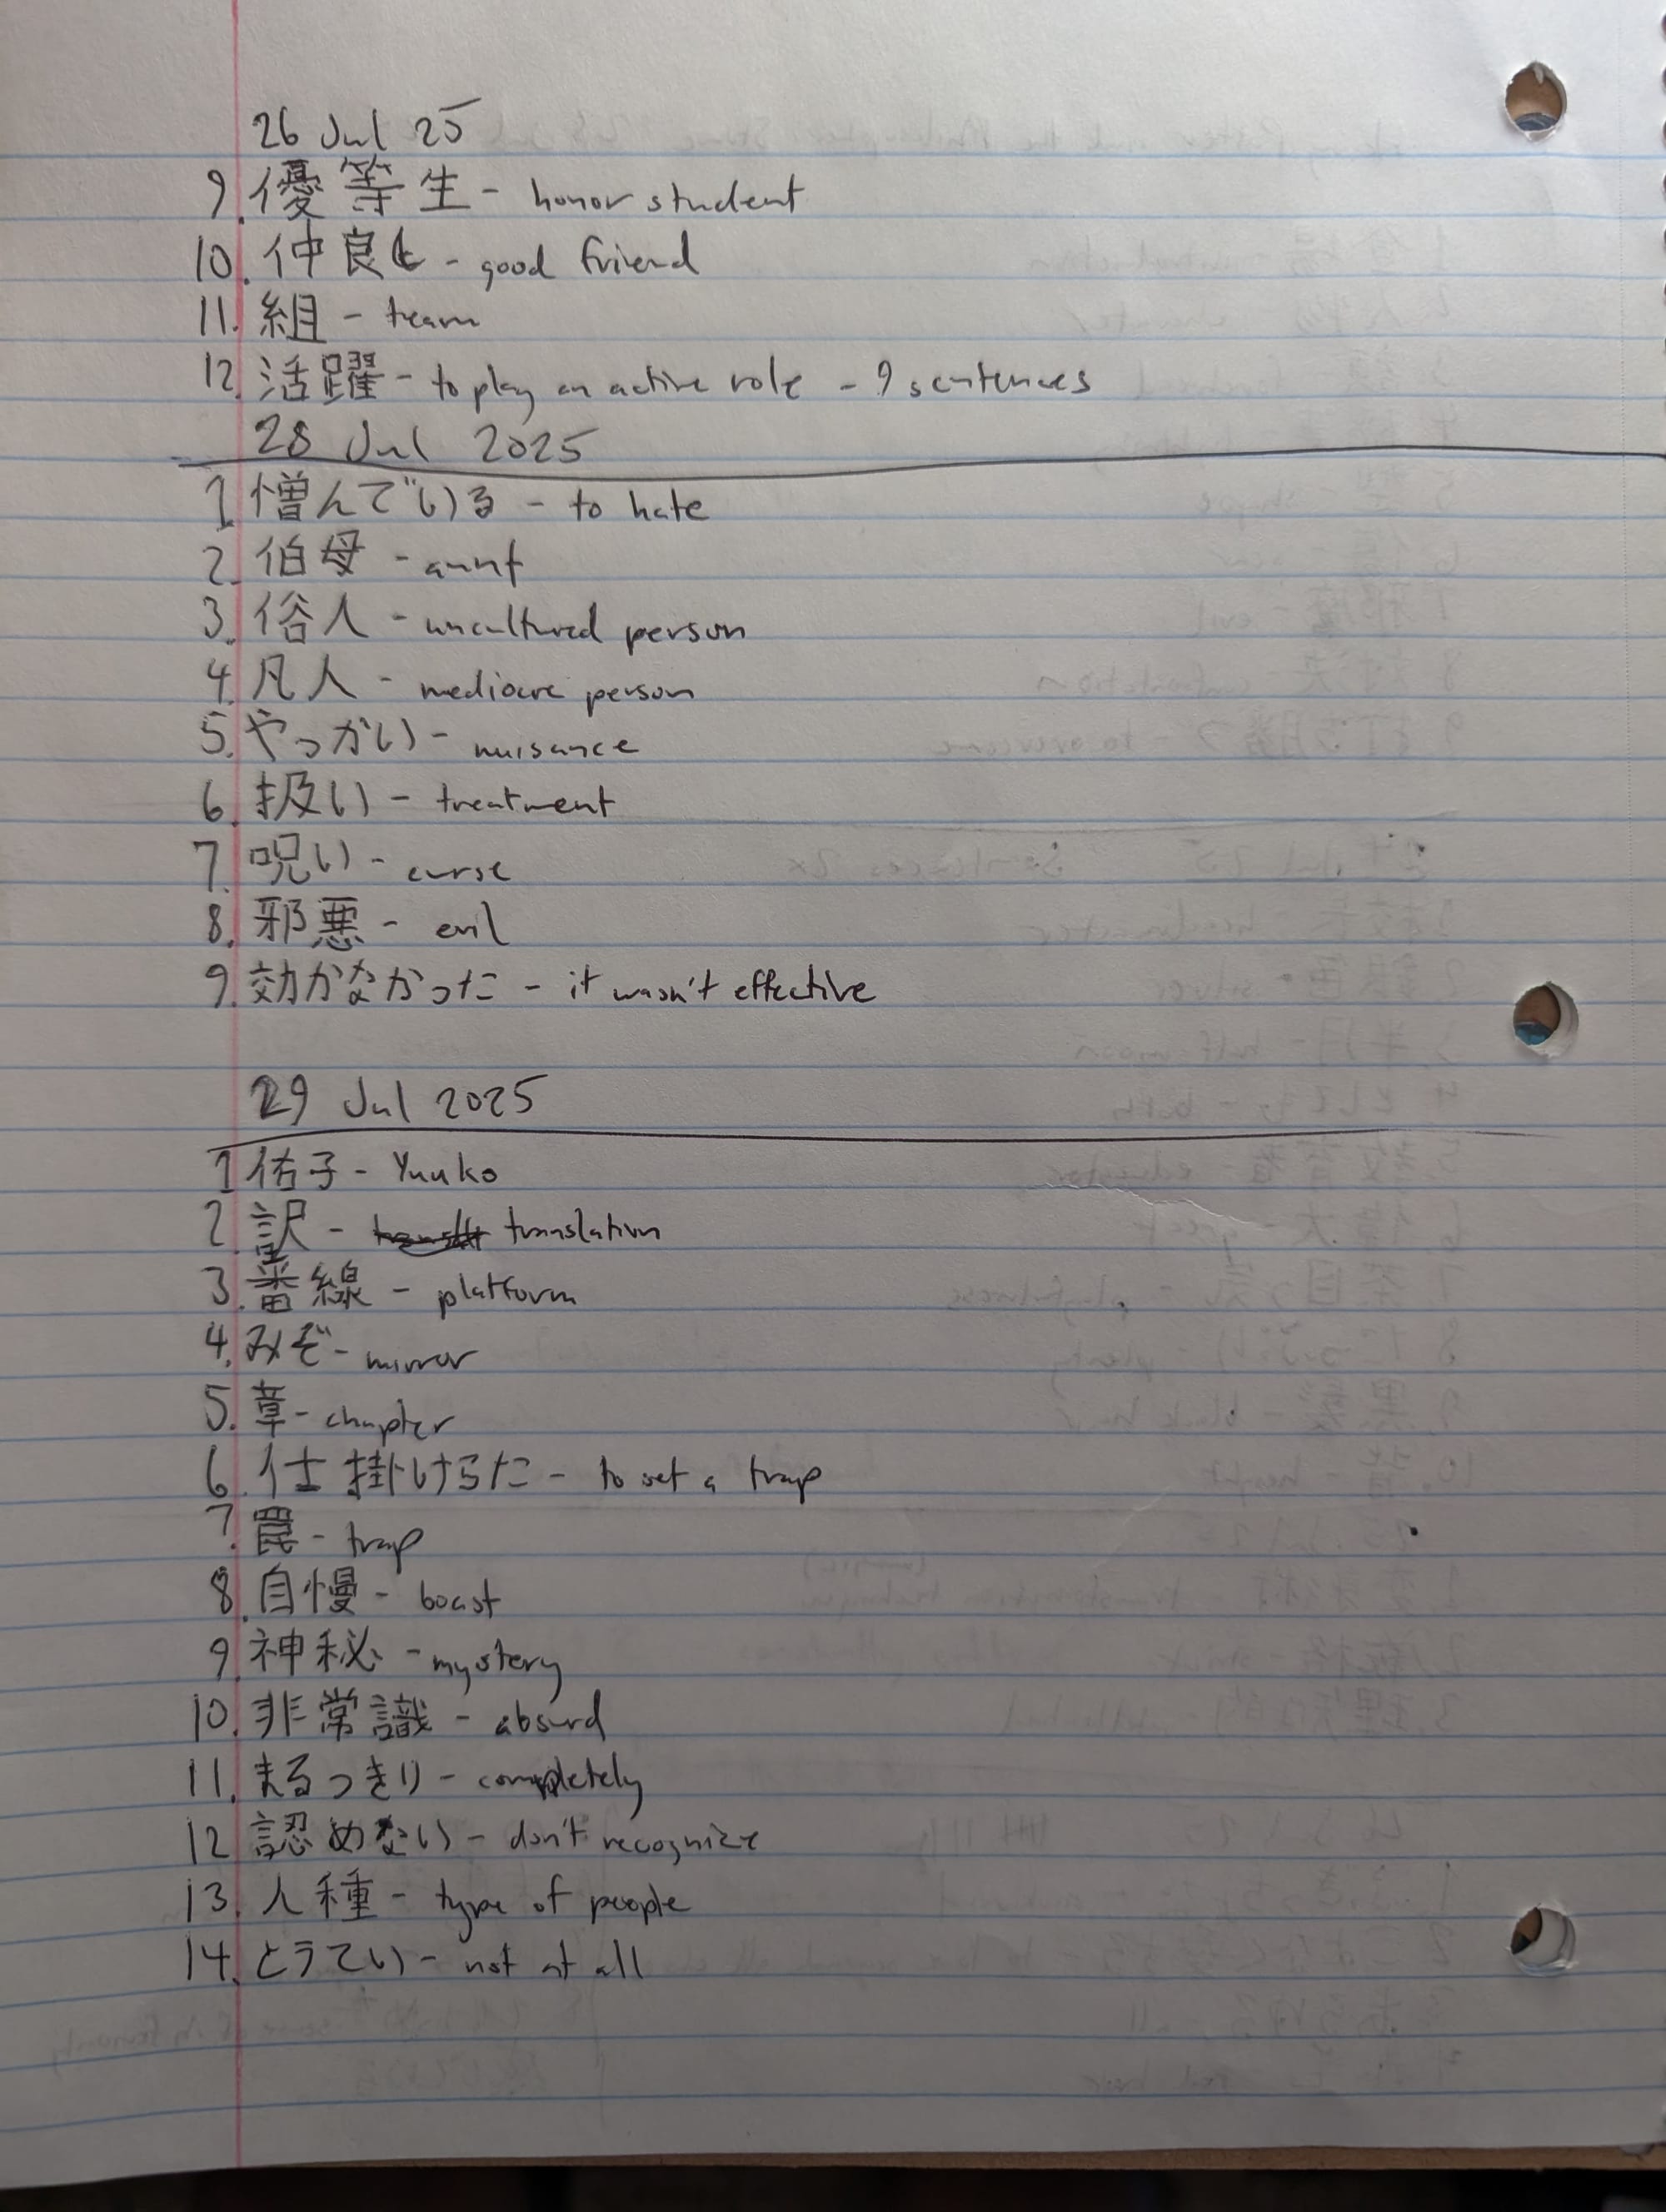 26 Jul 25
9. 優等生 - honor student
10. 仲良し - good friend
11. 組 - team
12. 活躍 - to play an active role - 9 sentences
28 Jul 2025
1. 憎んでいる - to hate
2. 伯母 - aunt
3. 俗人 - uncultured person
4. 凡人 - mediocre person
5. やっかい - nuisance
6. 扱い - treatment
7. 呪い - curse
8. 邪悪 - evil
9. 効かなかった - it wasn't effective
29 Jul 2025
1 佑子 - Yuuko
2. 訳 - translation
3. 番線 - platform
4. みぞ - mirror
5. 章 - chapter
6. 仕掛けらた - to set a trap
7. 罠 - trap
8. 自慢 - boast
9. 神秘 - mystery
10. 非常識 - absurd
11. まるっきり - completely
12 認めない - don't recognize
13. 人種 - type of people
14. とうてい - not at all